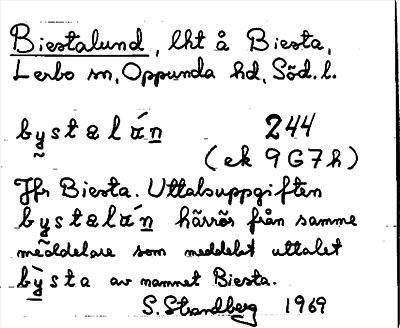 Biestalund, lht å Biesta,
Lerbo sn, Oppunda hd, Söd. l.
bystalán 244
(ek 9G7h)
Jfr Biesta. Uttalsuppgiften
bystalán härrör från samme
meddelare som meddelat uttalet
bỳsta av namnet Biesta.
S. Strandberg 1969